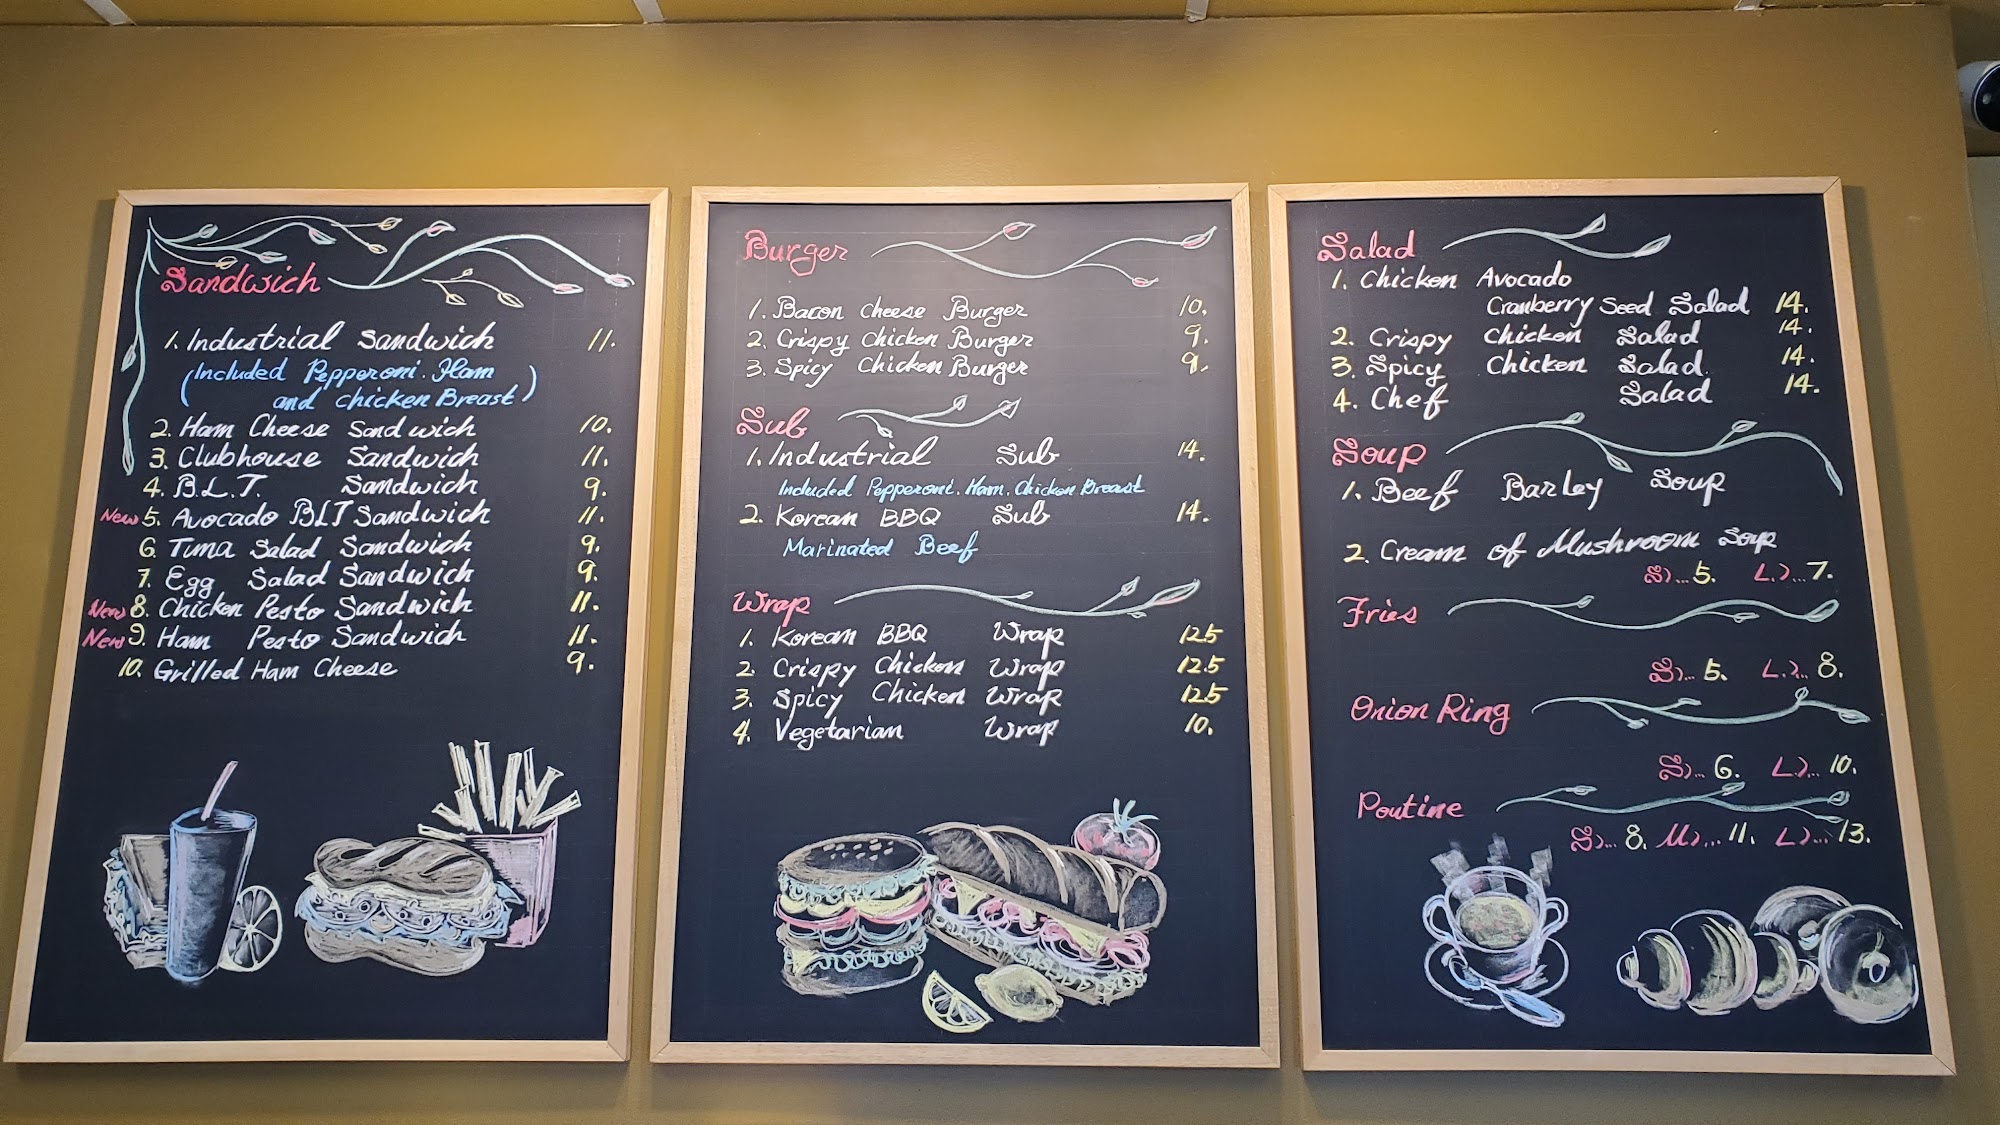 Sandwich
1. Industrial Sandwich 11.
(Included Pepperoni. Ham
and chicken Breast)
2. Ham Cheese Sandwich 10.
3. Clubhouse Sandwich 11.
4. B.L.T. Sandwich 9.
New 5. Avocado BLT Sandwich 11.
6. Tuna Salad Sandwich 9.
7. Egg Salad Sandwich 9.
New 8. Chicken Pesto Sandwich 11.
New 9. Ham Pesto Sandwich 11.
10. Grilled Ham Cheese 9.
Burger
1. Bacon Cheese Burger 10.
2. Crispy Chicken Burger 9.
3. Spicy Chicken Burger 9.
Sub
1. Industrial Sub 14.
Included Pepperoni. Ham. Chicken Breast
2. Korean BBQ Sub 14.
Marinated Beef
Wrap
1. Korean BBQ Wrap 12.5
2. Crispy Chicken Wrap 12.5
3. Spicy Chicken Wrap 12.5
4. Vegetarian Wrap 10.
Salad
1. Chicken Avocado
Cranberry Seed Salad 14.
2. Crispy Chicken Salad 14.
3. Spicy Chicken Salad 14.
4. Chef Salad 14.
Soup
1. Beef Barley Soup
2. Cream of Mushroom Soup
S)... 5. L)... 7.
Fries
S)... 5. L)... 8.
Onion Ring
S)... 6. L)... 10.
Poutine
S)... 8. M)... 11. L)... 13.